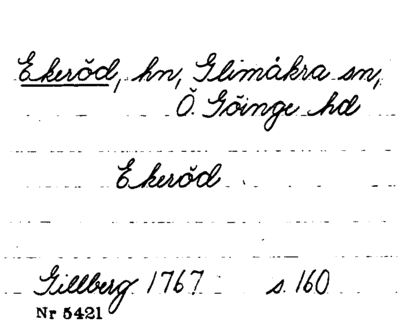 Ekeröd, hn, Glimåkra sn,
Ö. Göinge hd
Ekeröd
Gillberg 1767 s. 160
Nr 5421